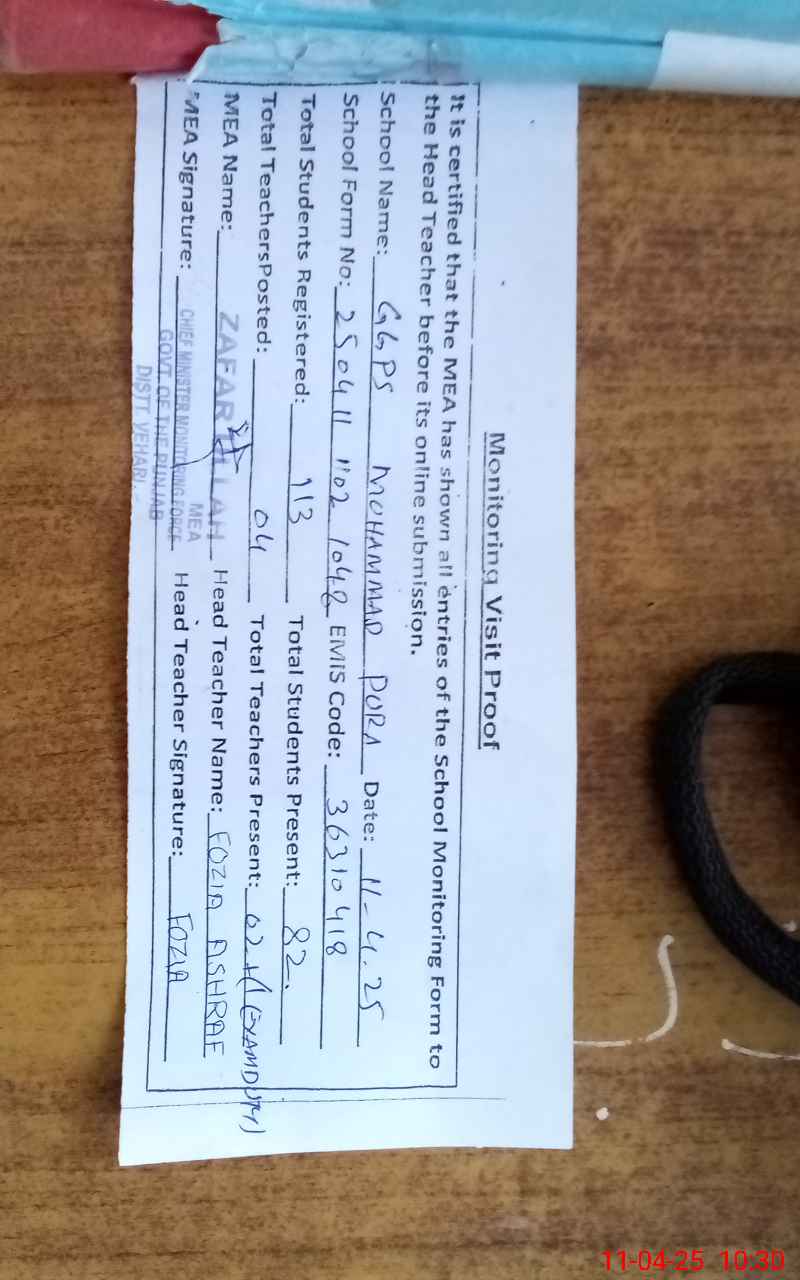 Monitoring Visit Proof
It is certified that the MEA has shown all entries of the School Monitoring Form to
the Head Teacher before its online submission.
School Name: GGPS MOHAMMAD PURA Date: 11-4.25
School Form No: 250411 1102 1048 EMIS Code: 36310418
Total Students Registered: 113 Total Students Present: 82.
Total TeachersPosted: 04 Total Teachers Present: 02+1(EXAMDUTY)
MEA Name: ZAFAR ULLAH Head Teacher Name: FOZIA ASHRAF
MEA
MEA Signature: Head Teacher Signature: FOZIA
CHIEF MINISTER MONITORING FORCE
GOVT. OF THE PUNJAB
DISTT. VEHARI
11-04-25 10:30